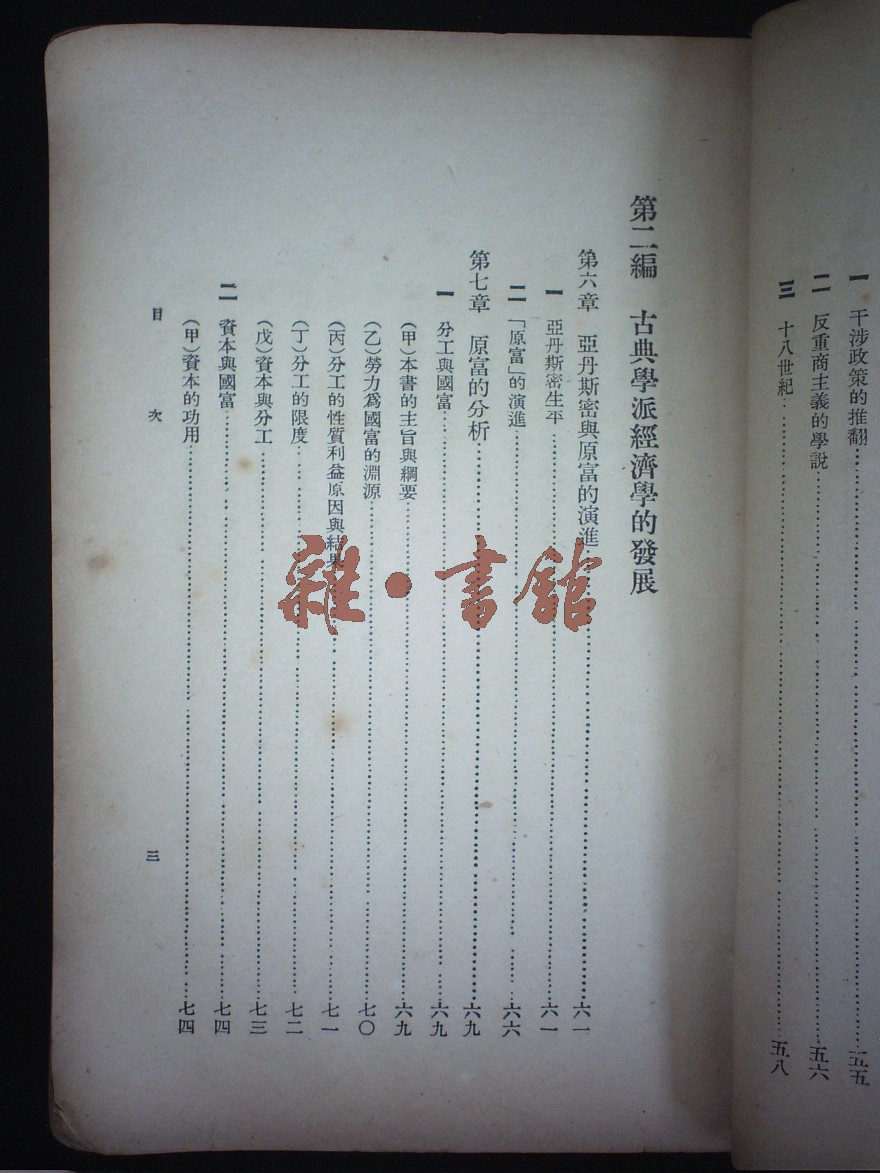 一 干涉政策的推翻……五五
二 反重商主義的學說……五六
三 十八世紀……五八
第二編 古典學派經濟學的發展
第六章 亞丹斯密與原富的演進……六一
一 亞丹斯密生平……六一
二 「原富」的演進……六六
第七章 原富的分析……六九
一 分工與國富……六九
(甲)本書的主旨與綱要……六九
(乙)勞力爲國富的淵源……七〇
(丙)分工的性質利益原因與結果……七一
(丁)分工的限度……七二
(戊)資本與分工……七三
二 資本與國富……七四
(甲)資本的功用……七四
目次 三
雜·書館